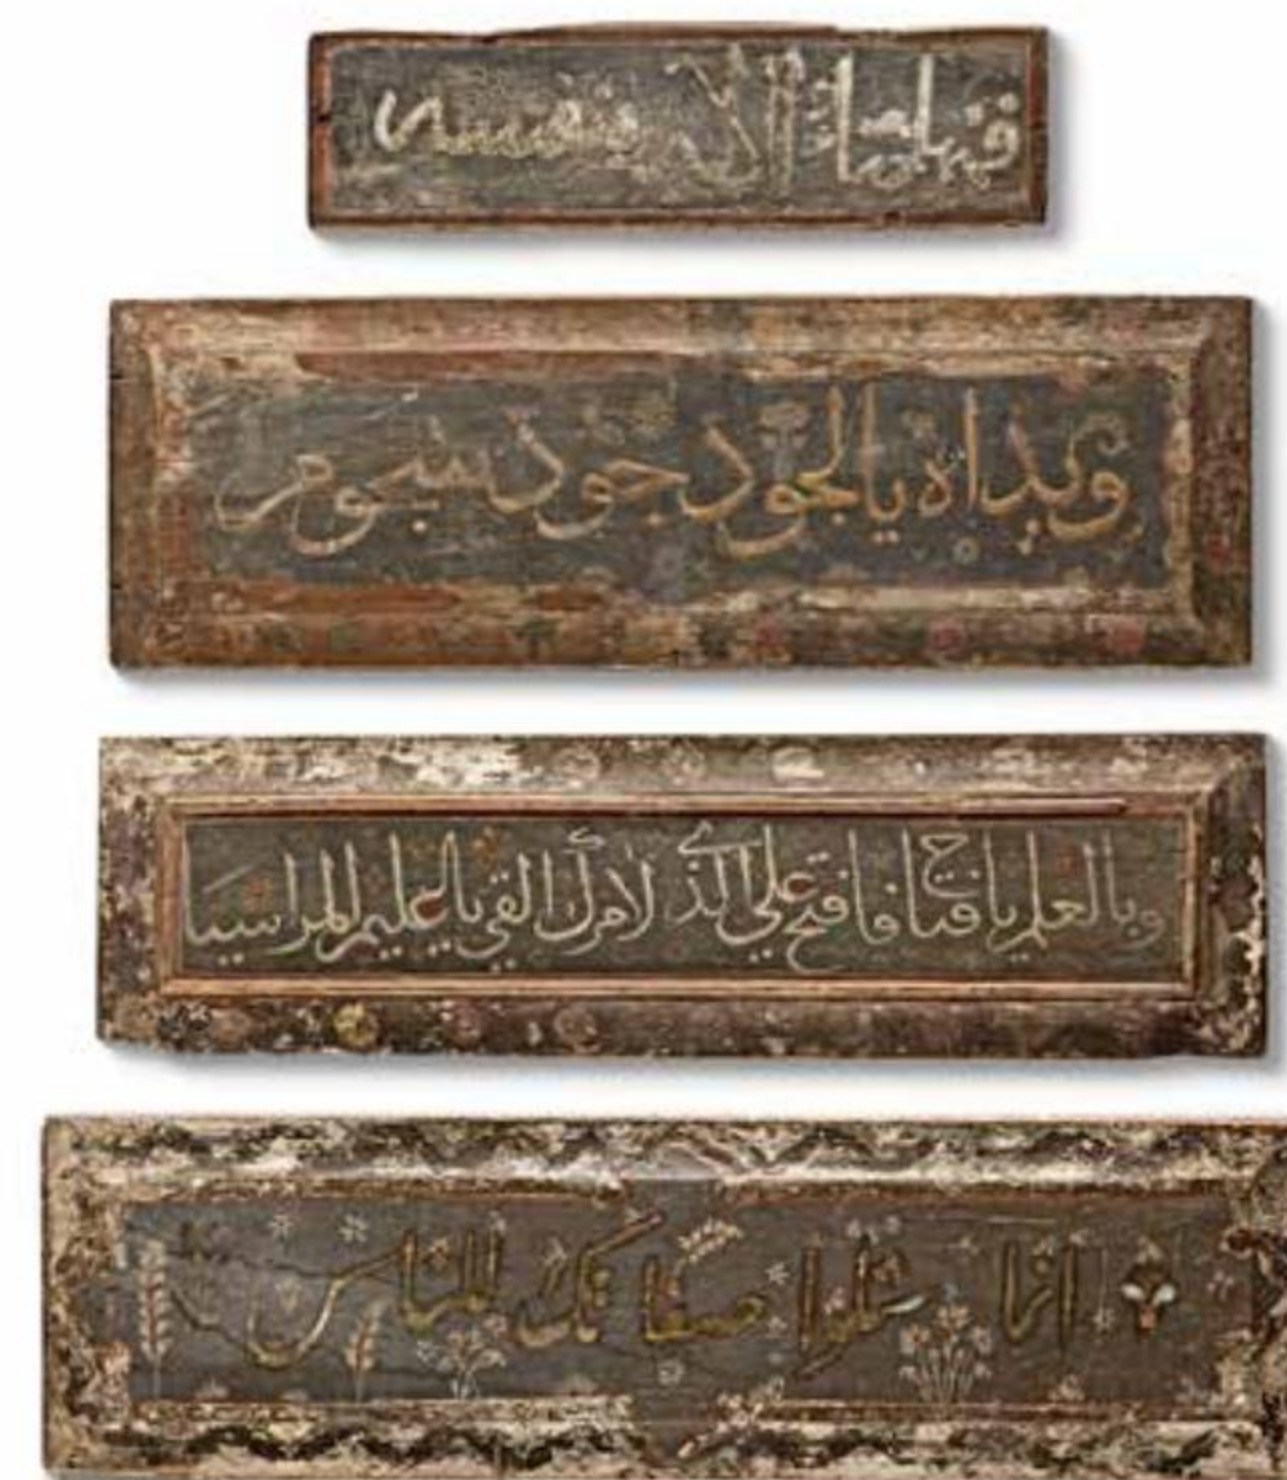 الا بنفسه
ويداه يالجود جود
وبالعلم يا فتاح فافتح علي الذي لامرك القي يا عليم المراسيا
انما مثلوا صفاتك للناس